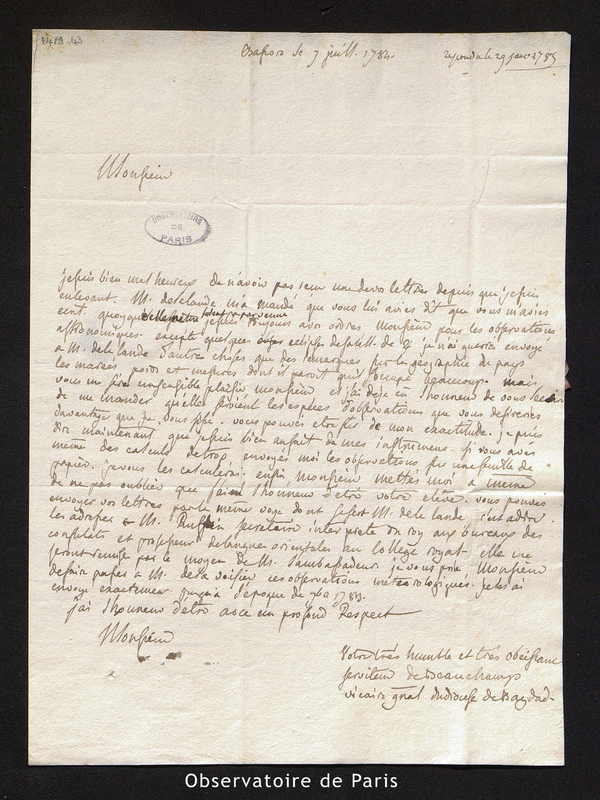 Bassora le 7 juill. 1784.
repondu le 29 janv 1785
Monsieur
OBSERVATOIRE
DE
PARIS
je suis bien malheureux de n'avoir pas reçu une de vos lettres depuis que je suis
en levant. M. de la lande m'a mandé que vous lui avies dit que vous m'avies
ecrit. quoyque je suis toujours a vos ordres Monsieur pour les observations
astronomiques. excepté quelques eclipses de satell. de ♃ je n'ai gueres envoyé
a M. de la lande d'autre choses que des remarques sur la geographie du pays
les marées, poids et mesures dont il paroit qu'il s'occupe beaucoup. mais
vous me fere un sensible plaisir monsieur et j'ai deja eu l'honneur de vous
de me mander quelles seroient les especes d'observations que vous desireries
davantage que je vous fisse. vous pouves etre sur de mon exactitude. je puis
dire maintenant que je suis bien au fait de mes instrumens. si vous aves
meme des calculs de trop envoyés moi les observations sur une feuille de
papier. je vous les calculerai. enfin Monsieur mettes moi a meme
de ne pas oublier que j'ai l'honneur d'etre votre eleve. vous pouves
envoyer vos lettres par la meme voye dont se sert M. de la lande. c'est a dire
les adresser a M. Ruffin secretaire interprete du roy aux bureaux des
consulats et professeur de langues orientales au college royal. elle me
seront remise par le moyen de M. l'ambassadeur. je vous prie Monsieur
de faire passer a M. ses observations météorologiques. je les ai
envoyé exactement jusqu'a l'epoque de 7bre 1783.
j'ai l'honneur d'etre avec un profond Respect
Monsieur
Votre très humble et très obeissant
serviteur de Beauchamp
vicaire gnal du diocese de Bagdad.
Observatoire de Paris